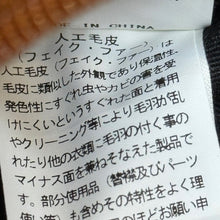 MADE IN CHINA
人工毛皮
(フェイク・ファー)
人工毛皮(フェイク・ファー)は
毛皮に類似した外観であり保温性・
発色性にすぐれ虫やカビの害を受
けにくいというすぐれた面と着用
やクリーニング等により毛羽功恬し
れたり他の衣類に毛羽の付く事の
マイナス面を兼ねそなえた製品で
す。部分使用品(替襟及びパーツ
使い等)も含めその特性をよく理
ほどお願い申